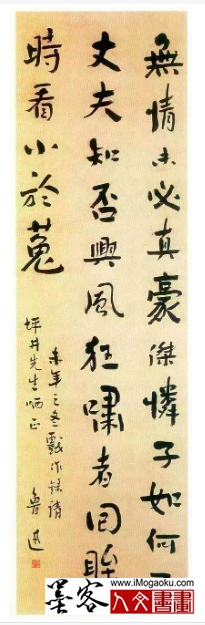 無情未必真豪傑憐子如何不
丈夫知否興風狂嘯者回眸
時看小於菟
未年之冬戲作錄請
坪井先生哂正
魯迅
www.iMogaoku.com
墨客 人文書畫